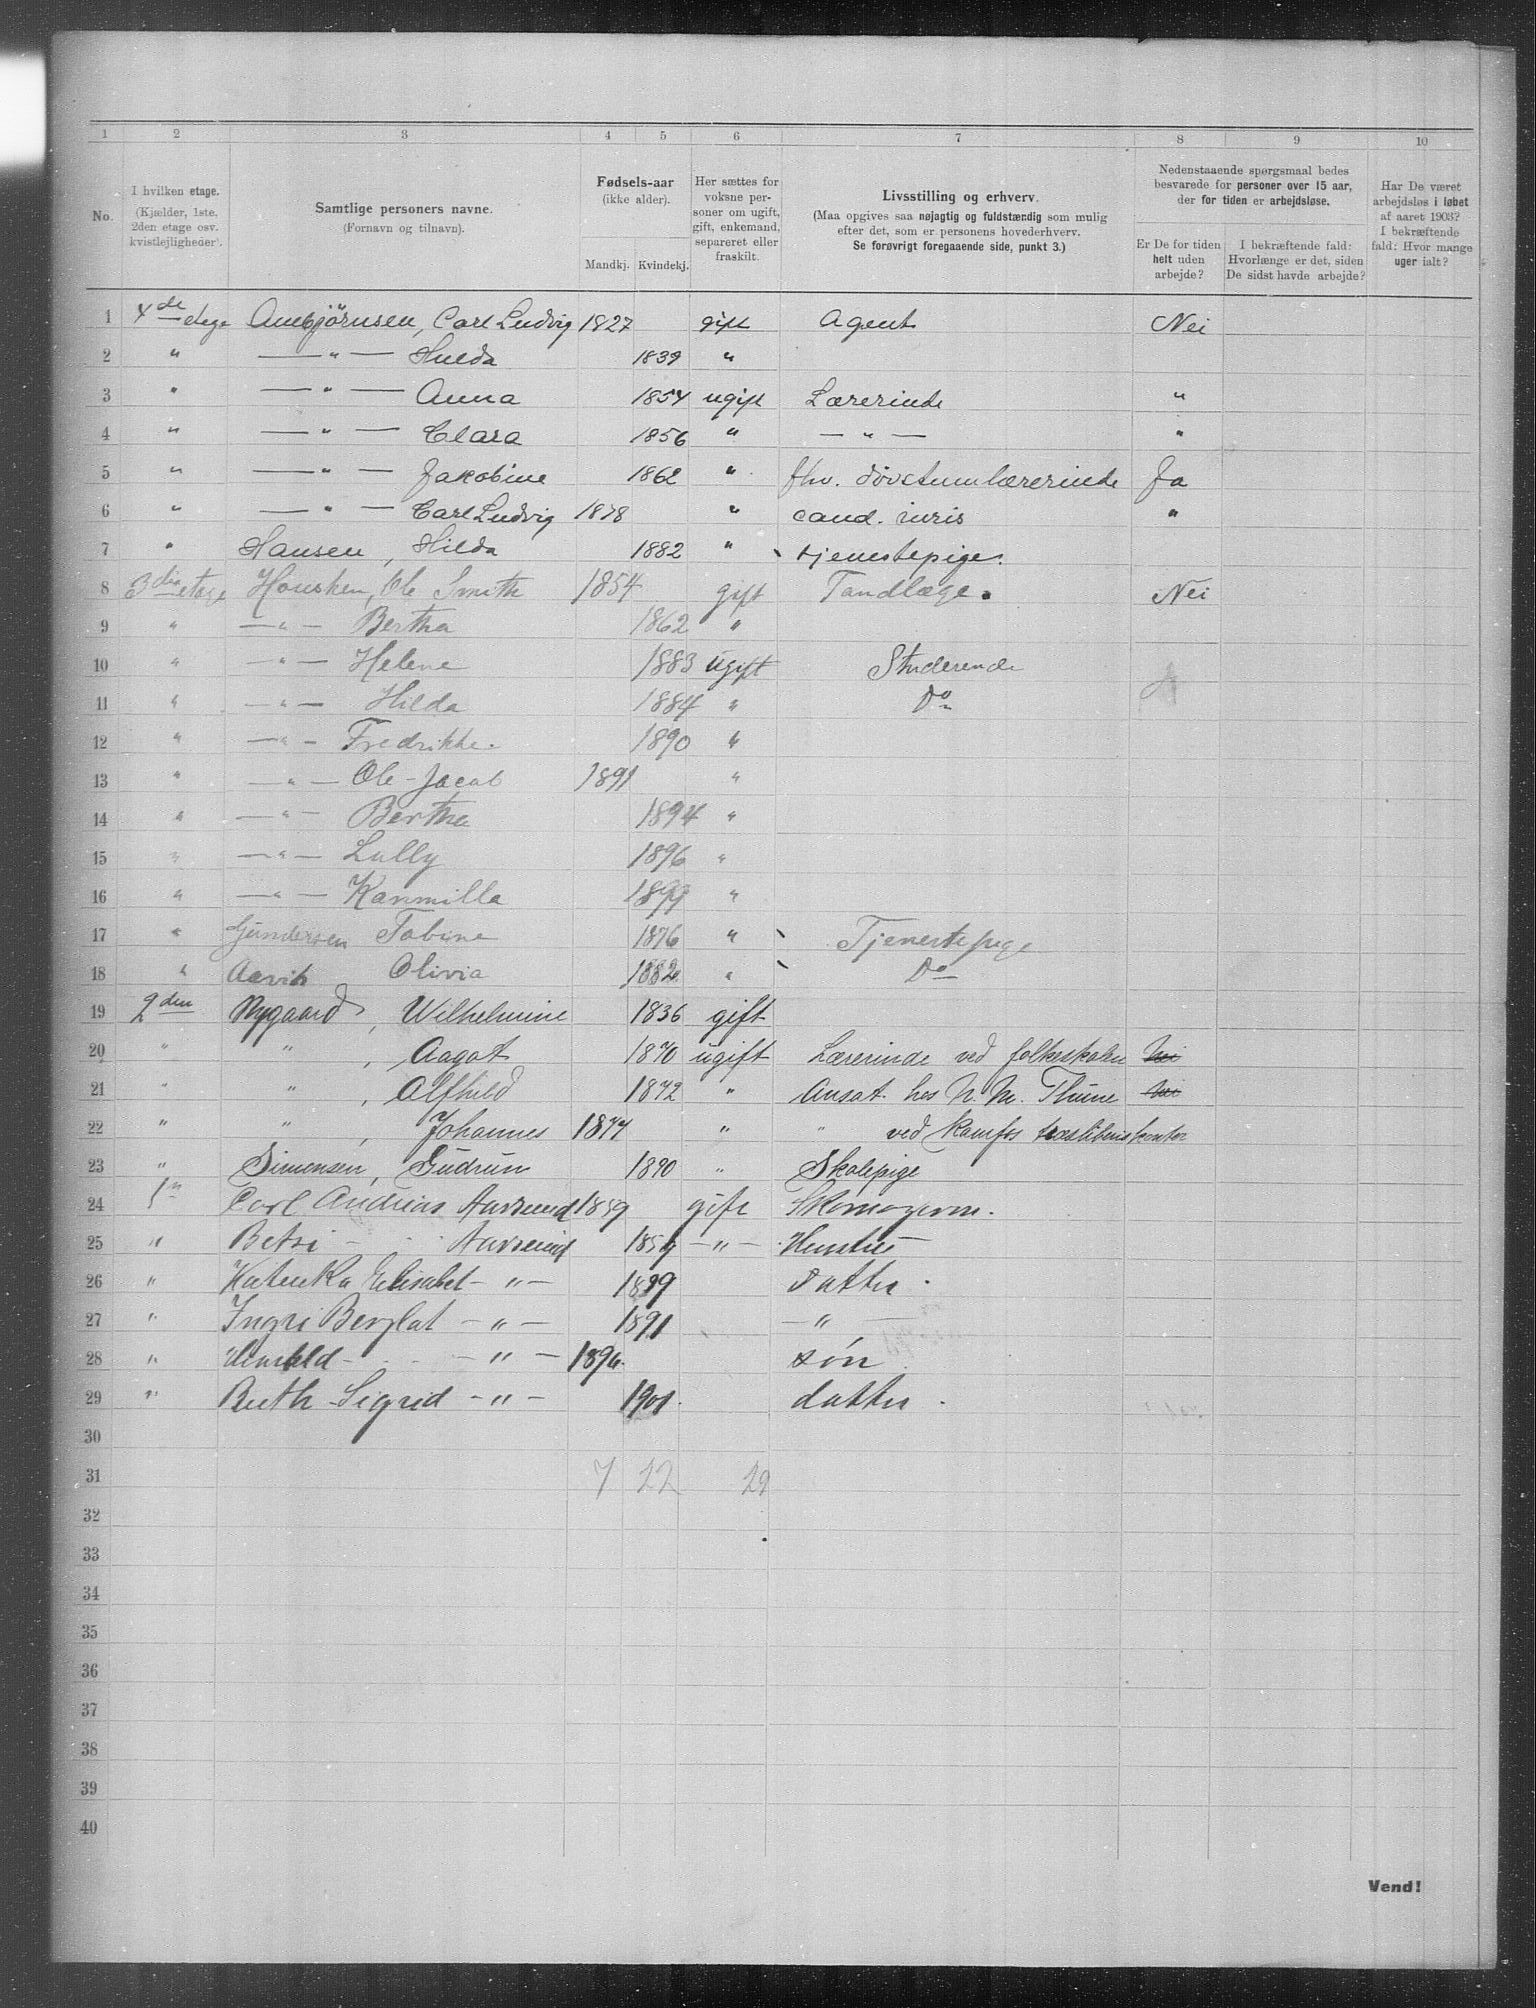 1 2 3 4 5 6 7 8 9 10
No.
I hvilken etage.
(Kjælder, 1ste,
2den etage osv.
kvistlejligheder).
Samtlige personers navne.
(Fornavn og tilnavn).
Fødsels-aar
(ikke alder).
Mandkj. Kvindekj.
Her sættes for
voksne per-
soner om ugift,
gift, enkemand,
separeret eller
fraskilt.
Livsstilling og erhverv.
(Maa opgives saa nøjagtig og fuldstændig som mulig
efter det, som er personens hovederhverv.
Se forøvrigt foregaaende side, punkt 3.)
Nedenstaaende spørgsmaal bedes
besvarede for personer over 15 aar,
der for tiden er arbejdsløse.
Er De for tiden
helt uden
arbejde?
I bekræftende fald:
Hvorlænge er det, siden
De sidst havde arbejde?
Har De været
arbejdsløs i løbet
af aaret 1903?
I bekræftende
fald: Hvor mange
uger ialt?
1 4de etage Ambjörnsen, Carl Ludvig 1827 gift Agent Nei
2 " — " — Hulda 1839 "
3 " — " — Anna 1854 ugift Lærerinde "
4 " — " — Clara 1856 " — " — "
5 " — " — Jakobine 1862 " fhv. døvstumlærerinde Ja
6 " — " — Carl Ludvig 1878 " cand. iuris "
7 " Hansen, Hilda 1882 " tjenestepige.
8 3die etage Housken, Ole Smith 1854 gift Tandlæge. Nei
9 " — " — Bertha 1862 "
10 " — " — Helene 1883 ugift Studerende
11 " — " — Hilda 1884 " Do
12 " — " — Fredrikke. 1890 "
13 " — " — Ole-Jacob 1891 "
14 " — " — Bertha 1894 "
15 " — " — Lally 1896 "
16 " — " — Kanmilla 1899 "
17 " Gundersen Tobine 1876 " Tjenestepige
18 " Aavik Olivia 1882 " Do
19 2den Nygaard, Wilhelmine 1836 gift
20 " " , Aagot 1870 ugift Lærerinde ved folkeskolen Nei
21 " " , Alfhild 1872 " Ansat hos N. M. Thune Nei
22 " " , Johannes 1877 " " ved Kamfos træsliberis kontor
23 " Simonsen, Gudrun 1890 " Skolepige
24 1n Carl Andreas Aurseund 1859 gift Skomagerm.
25 " Betsi — Aurseund 1859 — " — Hustru
26 " Katinka Elisabet — " — 1889 datter.
27 " Ingri Berglot — " — 1891 — " —
28 " — " — 1896. søn
29 " Ruth Sigrid — " — 1901. datter.
30
31 7 22 29
32
33
34
35
36
37
38
39
40
Vend!